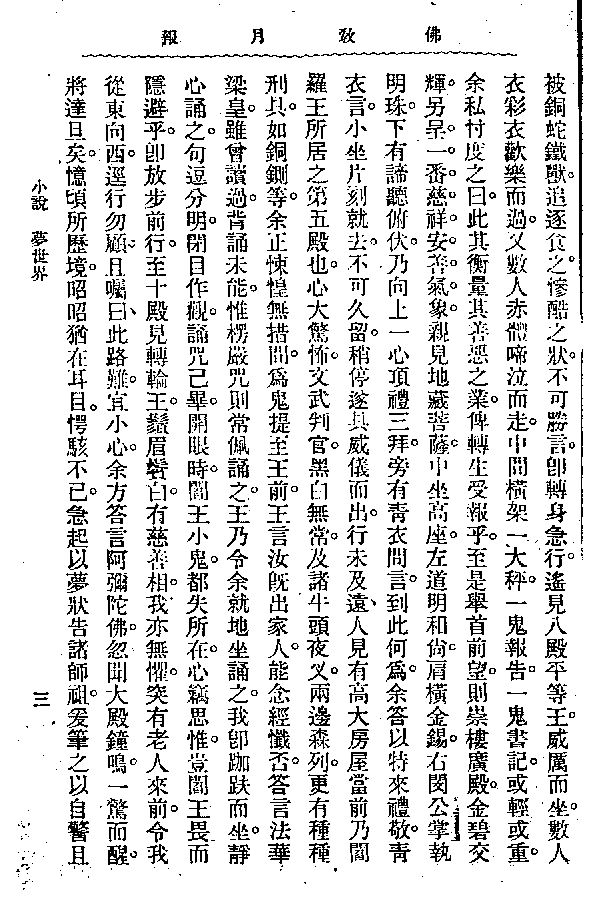 報月教佛
被銅蛇鐵獸。追逐食之。慘酷之狀。不可勝言。卽轉身急行。遙見八殿平等王。威厲而坐。數人
衣彩衣歡樂而過。又數人赤體啼泣而走。中間橫架一大秤。一鬼報告。一鬼書記。或輕或重。
余私忖度之曰。此其衡量其善惡之業。俾轉生受報乎。至是舉首前望。則崇樓廣殿。金碧交
輝。另呈一番慈祥安善氣象。親見地藏菩薩。中坐高座。左道明和尙。肩橫金錫。右閔公。掌執
明珠。下有諦聽俯伏。乃向上一心頂禮三拜。旁有靑衣問言。到此何爲。余答以特來禮敬。靑
衣言。小坐片刻就去。不可久留。稍停遂具威儀而出。行未及遠、人見有高大房屋當前。乃閻
羅王所居之第五殿也。心大驚怖。文武判官。黑白無常。及諸牛頭夜叉。兩邊森列。更有種種
刑具。如銅鍘等。余正悚惶無措間。爲鬼提至王前。王言汝旣出家人。能念經懺否。答言法華
梁皇。雖曾讀過。背誦未能。惟楞嚴咒則常佩誦之。王乃令余就地坐誦之。我卽跏趺而坐。靜
心誦之。句逗分明。閉目作觀。誦咒已畢。開眼時。閻王小鬼。都失所在。心竊思惟。豈閻王畏而
隱避乎。卽放步前行。至十殿見轉輪王。鬚眉鬢白。有慈善相。我亦無懼。突有老人來前。令我
從東向西。逕行勿顧、且囑曰、此路難。宜小心。余方答言阿彌陀佛。忽聞大殿鐘鳴。一驚而醒。
將達旦矣。憶頃所歷境。昭昭猶在耳目。愕駭不已。急起以夢狀告諸師祖。爰筆之以自警。且
小說　夢世界
三